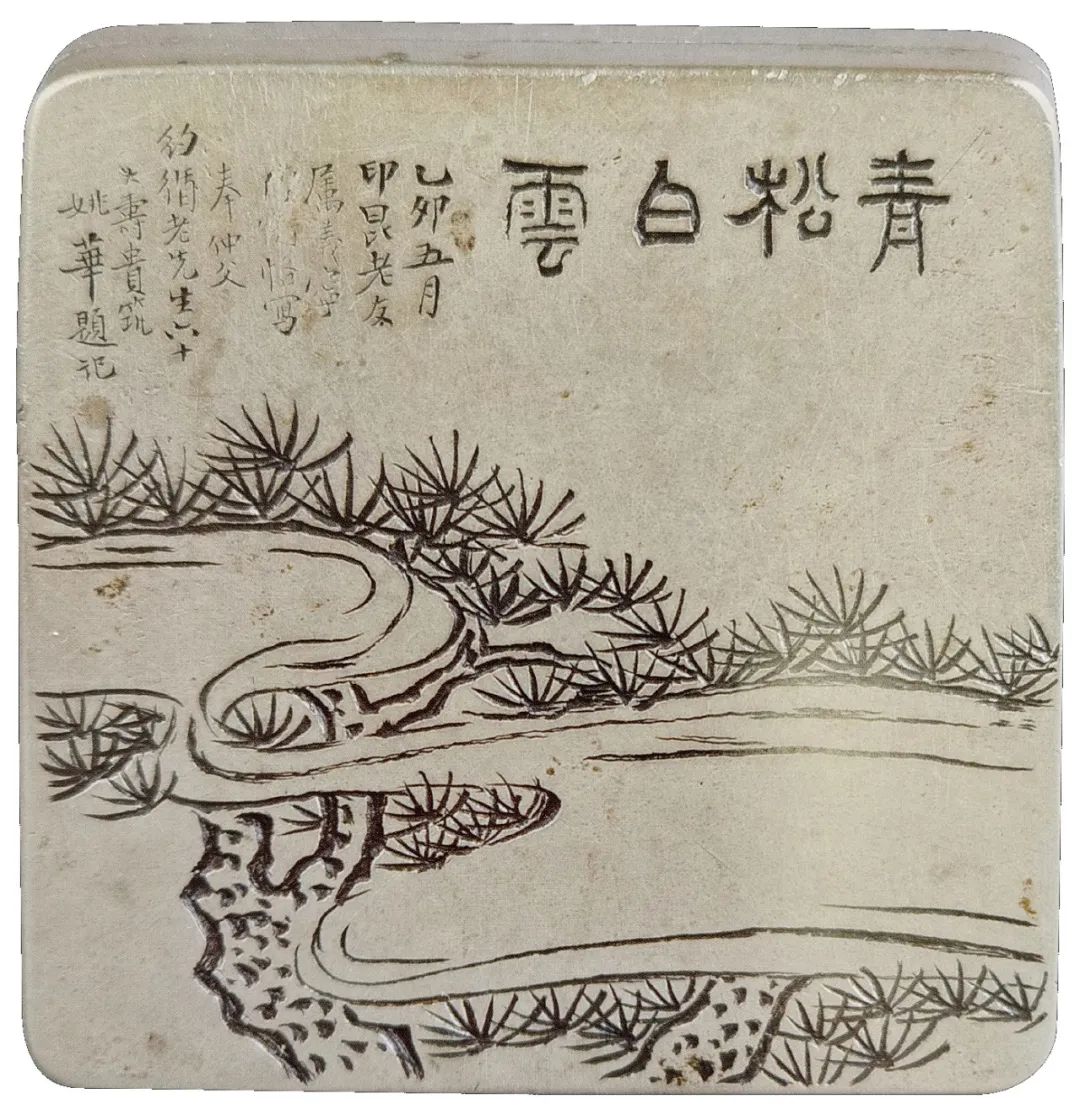 青松白雲
乙卯五月
印昆老友
属
寫
奉仲父
約循老先生六十
大壽貴筑
姚華題記